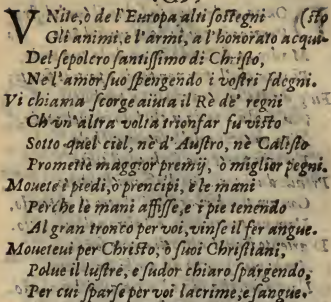 VNite, ò de l'Europa alti sostegni (sto
Gli animi, e l'armi, a l'honorato acqui-
Del sepolcro santissimo di Christo,
Ne l'amor suo spengendo i vostri sdegni.
Vi chiama scorge aiuta il Rè de' regni
Ch'vn'altra volta trionfar fu visto
Sotto quel ciel, nè d'Austro, nè Calisto
Promette maggior premij, ò miglior pegni.
Mouete i piedi, ò prencipi, e le mani
Perche le mani affisse, e i piè tenendo
Al gran tronco per voi, vinse il fer angue.
Moueteui per Christo, ò suoi Christiani,
Polue il lustrè, e sudor chiaro spargendo,
Per cui sparse per voi lacrime, e sangue.